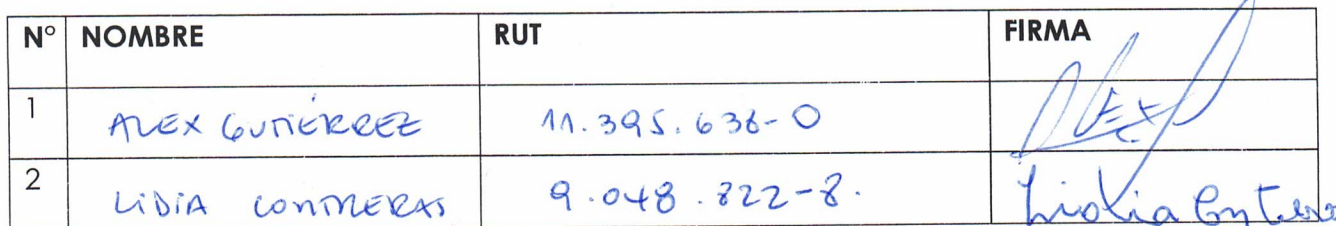 N° NOMBRE RUT FIRMA
1 ALEX GUTIÉRREZ 11.395.636-0 Alex
2 LIDIA CONTRERAS 9.048.822-8. Lidia Contreras